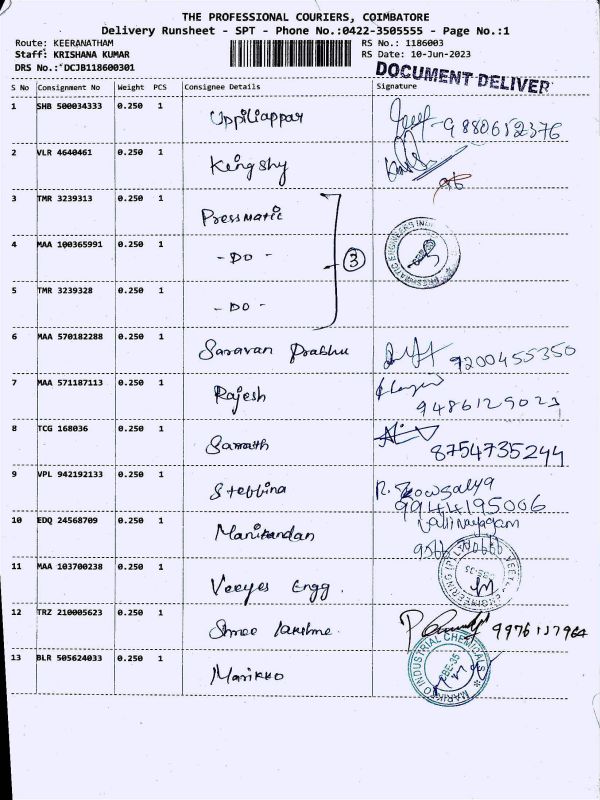 THE PROFESSIONAL COURIERS, COIMBATORE
Delivery Runsheet - SPT - Phone No.:0422-3505555 - Page No.:1
Route: KEERANATHAM RS No.: 1186003
Staff: KRISHANA KUMAR RS Date: 10-Jun-2023
DRS No.: DCJB118600301
DOCUMENT DELIVER
S No Consignment No Weight PCS Consignee Details Signature
1 SHB 500034333 0.250 1 Uppiliappar 9880652376
2 VLR 4640461 0.250 1 Kingshy
3 TMR 3239313 0.250 1 Pressmatic
4 MAA 100365991 0.250 1 - DO - 3
5 TMR 3239328 0.250 1 - DO -
6 MAA 570182288 0.250 1 Saravan Prabhu 9200455350
7 MAA 571187113 0.250 1 Rajesh 9486129023
8 TCG 168036 0.250 1 Samrath 8754735244
9 VPL 942192133 0.250 1 Stebbina R. Gowsalya
9944195006
10 EDQ 24568709 0.250 1 Manikandan Vallinayagam
11 MAA 103700238 0.250 1 Veeyes Engg.
12 TRZ 210005623 0.250 1 Shree lakshme. 9976137964
13 BLR 505624033 0.250 1 Marikko
MARIKKO INDUSTRIAL CHEMICALS
CBE-35